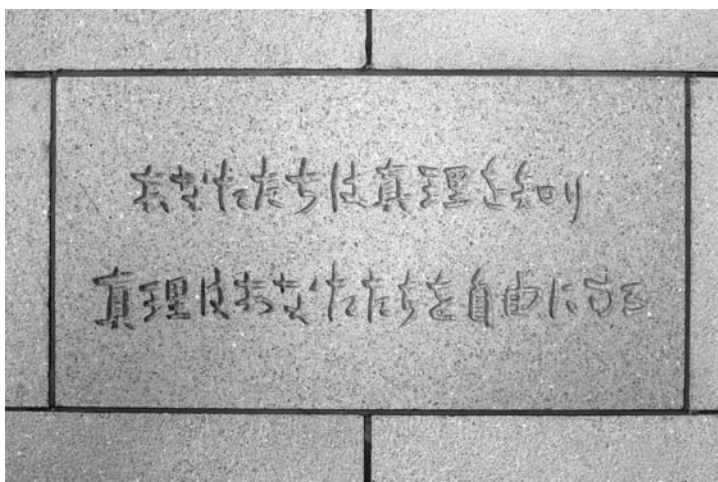 あなたたちは真理を知り
真理はあなたたちを自由にする